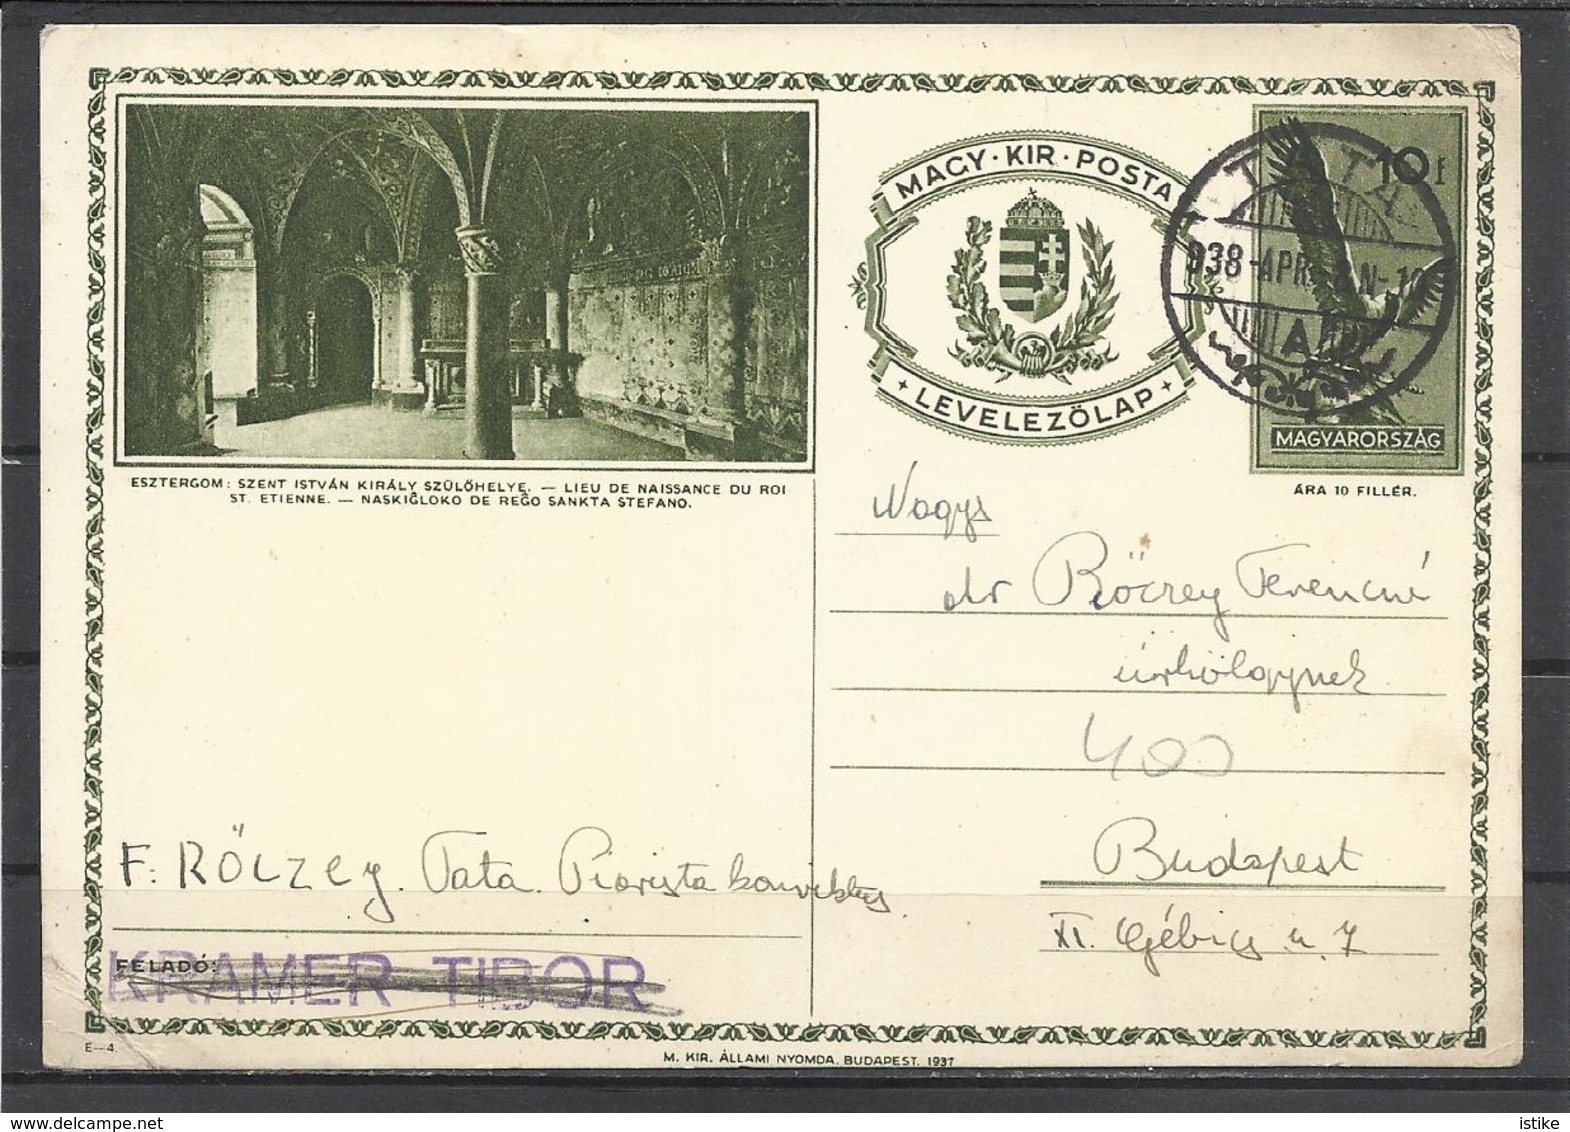 MAGY · KIR · POSTA
LEVELEZŐLAP
10 f
TATA
938 - APR
A
MAGYARORSZÁG
ÁRA 10 FILLÉR.
ESZTERGOM: SZENT ISTVÁN KIRÁLY SZÜLŐHELYE. — LIEU DE NAISSANCE DU ROI
ST. ETIENNE. — NASKIĜLOKO DE REĜO SANKTA STEFANO.
Nagys
dr Rőczey Ferencné
úrhölgynek
400
Budapest
XI. u 7
F. RŐCZEY. Tata. Piarista konviktus
FELADÓ:
KRAMER TIBOR
E—4.
M. KIR. ÁLLAMI NYOMDA. BUDAPEST. 1937
delcampe.net
istike